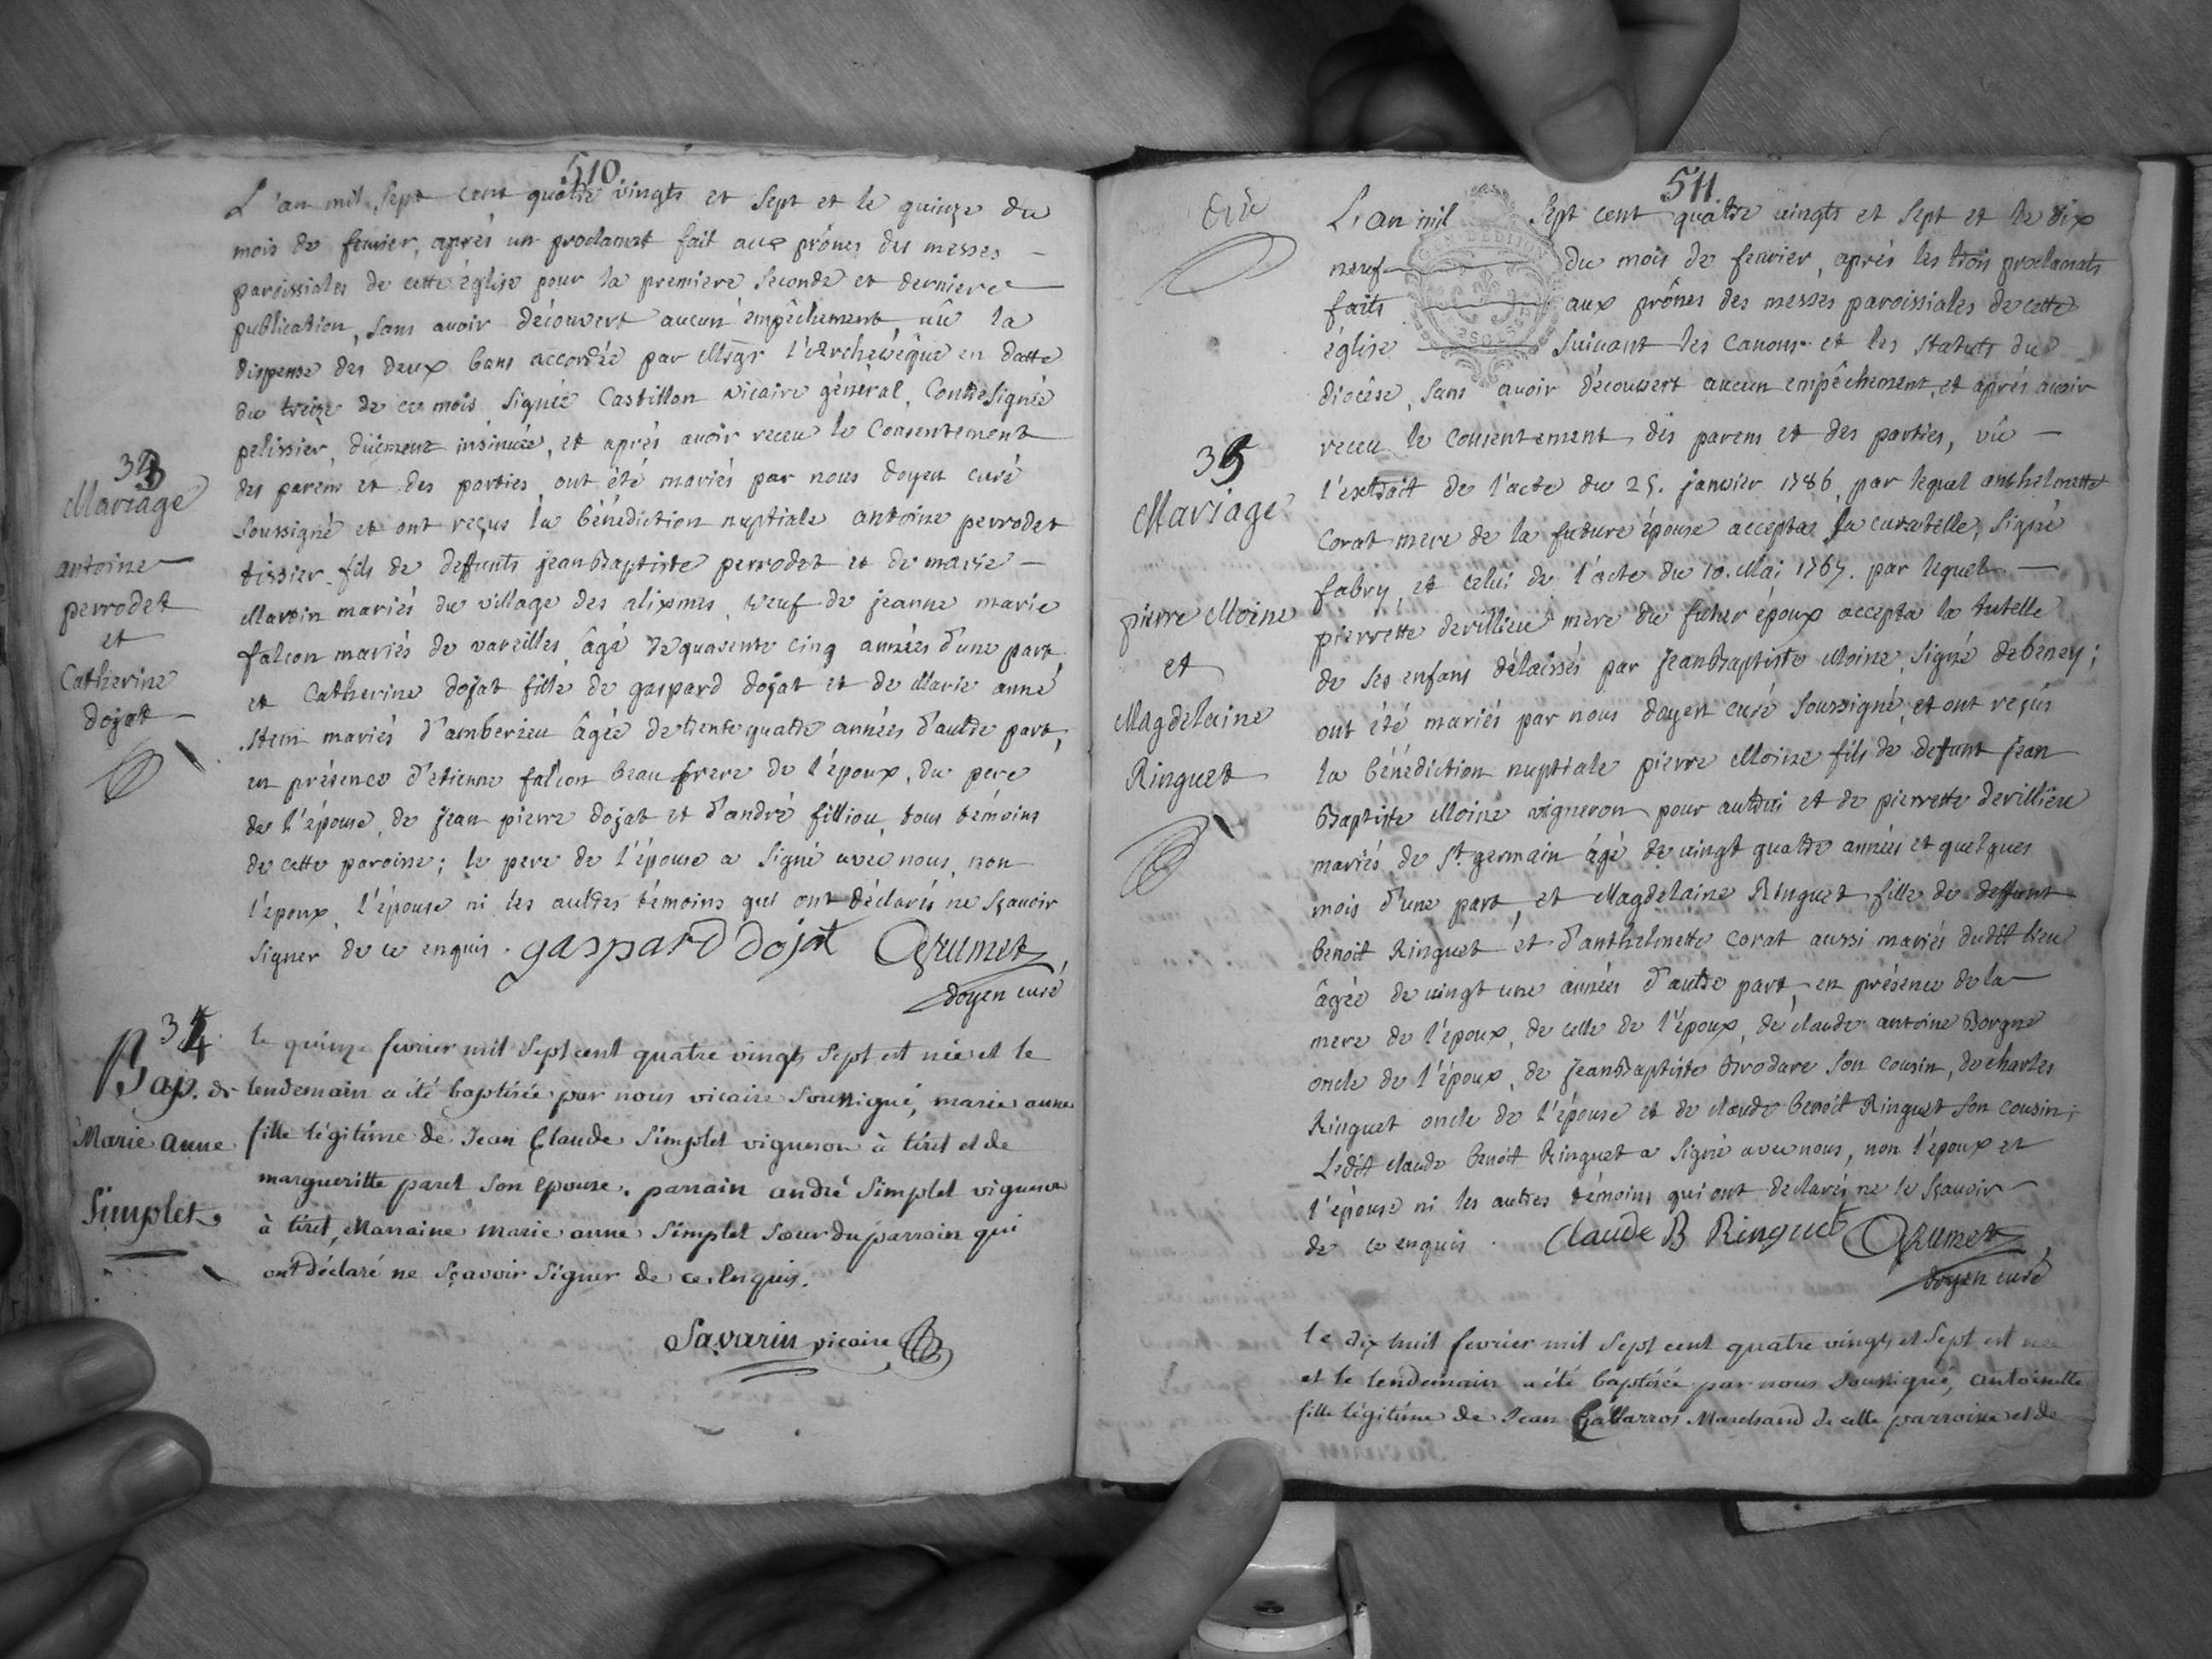 510
L'an mil sept cent quatre vingts et sept et le quinze du
mois de fevrier, aprés un proclamat fait aux prônes des messes
paroissiales de cette église pour la premiere seconde et derniere
publication, sans avoir découvert aucun empêchement, vû la
dispense des deux bans accordée par Msgr l'Archevêque en datte
du treize de ce mois signée Castillon vicaire général, Contresignée
pelissier, düement insinuée, et aprés avoir receu le Consentement
des parens et des parties, ont été mariés par nous doyen curé
soussigné et ont reçus la bénédiction nuptiale antoine perrodet
tissier fils de deffunts jean Baptiste perrodet et de marie
Martin mariés du village des alixmes, veuf de jeanne marie
falcon mariés de vareilles, âgé de quarente cinq années d'une part,
et Catherine dojat fille de gaspard dojat et de Marie anne
stem mariés d'amberieu âgée de trente quatre années d'autre part,
en présence d'etienne falcon beau frere de l'époux, du pere
de l'épouse, de jean pierre dojat et d'andré filliou, tous témoins
de cette paroisse; le pere de l'épouse a signé avec nous, non
l'époux, l'épouse ni les autres témoins qui ont déclarés ne sçavoir
signer de ce enquis. gaspard dojat Grumet,
doyen curé
33
Mariage
antoine
perrodet
et
Catherine
dojat
34
Bap. de
Marie anne
Simplet
le quinze fevrier mil sept cent quatre vingts sept est née et le
lendemain a été baptisée par nous vicaire soussigné, marie anne
fille légitime de Jean Claude Simplet vigneron à tiret et de
margueritte paret son epouse. parrain andré Simplet vigneron
à tiret, Marraine marie anne Simplet sœur du parrain qui
ont déclaré ne sçavoir signer de ce enquis.
Savarin vicaire
511
L'an mil sept cent quatre vingts et sept et le dix
neuf du mois de fevrier, aprés les trois proclamats
faits aux prônes des messes paroissiales de cette
église suivant les Canons et les statuts du
diocése, sans avoir découvert aucun empêchement, et aprés avoir
receu le consentement des parens et des parties, vû
l'extrait de l'acte du 25. janvier 1786, par lequel anthelmette
Corat mere de la future épouse accepta la curatelle, signé
fabry, et celui de l'acte du 10. Mai 1767. par lequel
pierrette derillieu mere du futur époux accepta la tutelle
de ses enfans délaissés par jean Baptiste Moine, signé debeney;
ont été mariés par nous doyen curé soussigné, et ont reçus
la bénédiction nuptiale pierre Moine fils de defunt jean
Baptiste Moine vigneron pour autrui et de pierrette derillieu
mariés de St. germain âgé de vingt quatre années et quelques
mois d'une part, et Magdelaine Ringuet fille de deffunt
benoit Ringuet et d'anthelmette corat aussi mariés dudit lieu
âgée de vingt une années d'autre part, en présence de la
mere de l'époux, de celle de l'époux, de claude antoine Borgne
oncle de l'époux, de jean Baptiste Brodare son cousin, de charles
Ringuet oncle de l'épouse et de claude benoit Ringuet son cousin;
Ledit claude benoit Ringuet a signé avec nous, non l'époux et
l'épouse ni les autres témoins qui ont declarés ne le sçavoir
de ce enquis. Claude B Ringuet Grumet,
doyen curé
35
Mariage
pierre Moine
et
Magdelaine
Ringuet
le dix huit fevrier mil sept cent quatre vingts et sept est née
et le lendemain a été baptisée par nous soussigné, antoinette
fille légitime de Jean Marchand de cette parroisse et de